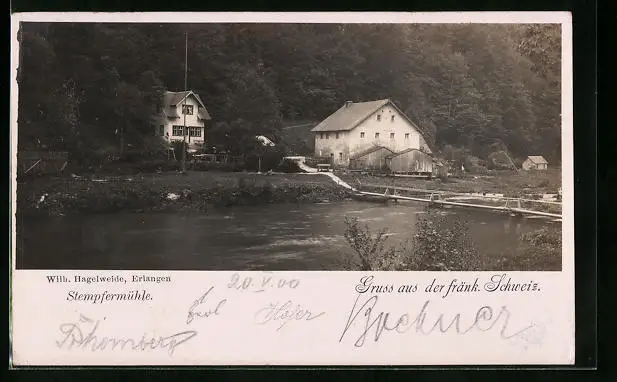 Wilh. Hagelweide, Erlangen
Stempfermühle.
20.V.00
Gruss aus der fränk. Schweiz.
Höfer
Bockner